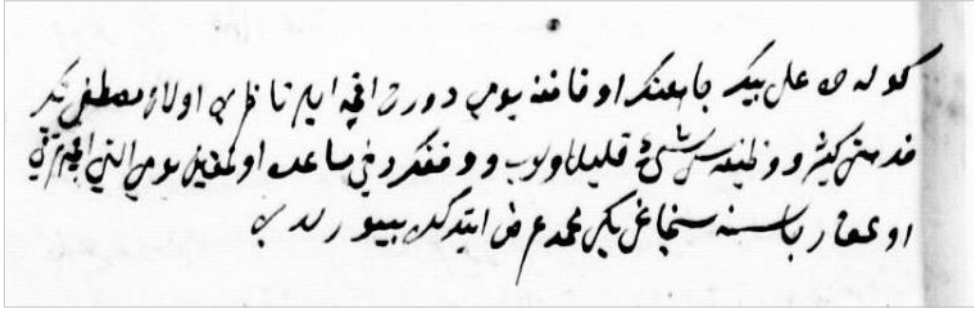 كوله ده على بيك جامعنك اوقافنه يومى دورت اقچه ايله ناظر اولان مصطفى نك
خدمتى كثير و وظيفه سى قليل اولوب و وقفك دخى مساعده اولمغين يومى التى اقچه ترقى
سنجاغى بكى محمد عرض ايتدكده بيورلدى